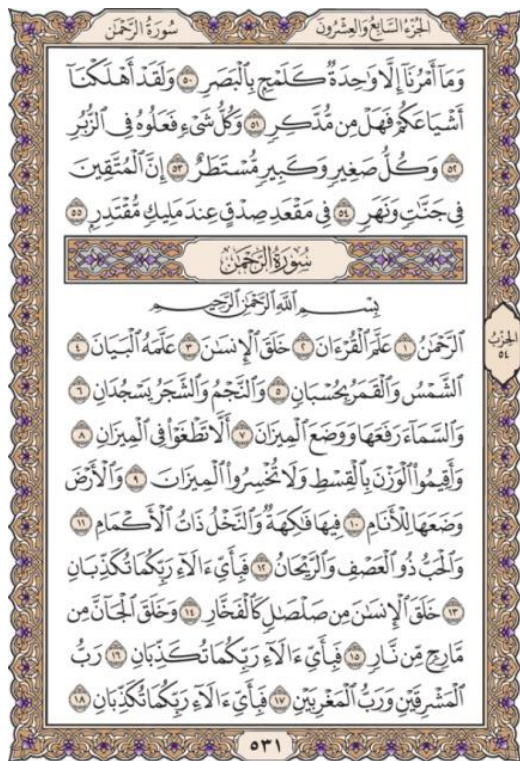 سُورَةُ الرَّحْمٰن
الجُزْءُ السَّابِعُ وَالعِشْرُونَ
وَمَآ أَمْرُنَآ إِلَّا وَٰحِدَةٌ كَلَمْحٍۭ بِٱلْبَصَرِ ٥٠ وَلَقَدْ أَهْلَكْنَآ
أَشْيَاعَكُمْ فَهَلْ مِن مُّدَّكِرٍ ٥١ وَكُلُّ شَىْءٍ فَعَلُوهُ فِى ٱلزُّبُرِ
٥٢ وَكُلُّ صَغِيرٍ وَكَبِيرٍ مُّسْتَطَرٌ ٥٣ إِنَّ ٱلْمُتَّقِينَ
فِى جَنَّٰتٍ وَنَهَرٍ ٥٤ فِى مَقْعَدِ صِدْقٍ عِندَ مَلِيكٍ مُّقْتَدِرٍۭ ٥٥
سُورَةُ الرَّحْمٰن
بِسْمِ ٱللَّهِ ٱلرَّحْمَٰنِ ٱلرَّحِيمِ
ٱلرَّحْمَٰنُ ١ عَلَّمَ ٱلْقُرْءَانَ ٢ خَلَقَ ٱلْإِنسَٰنَ ٣ عَلَّمَهُ ٱلْبَيَانَ ٤
ٱلشَّمْسُ وَٱلْقَمَرُ بِحُسْبَانٍ ٥ وَٱلنَّجْمُ وَٱلشَّجَرُ يَسْجُدَانِ ٦
وَٱلسَّمَآءَ رَفَعَهَا وَوَضَعَ ٱلْمِيزَانَ ٧ أَلَّا تَطْغَوْا۟ فِى ٱلْمِيزَانِ ٨
وَأَقِيمُوا۟ ٱلْوَزْنَ بِٱلْقِسْطِ وَلَا تُخْسِرُوا۟ ٱلْمِيزَانَ ٩ وَٱلْأَرْضَ
وَضَعَهَا لِلْأَنَامِ ١٠ فِيهَا فَٰكِهَةٌ وَٱلنَّخْلُ ذَاتُ ٱلْأَكْمَامِ ١١
وَٱلْحَبُّ ذُو ٱلْعَصْفِ وَٱلرَّيْحَانُ ١٢ فَبِأَىِّ ءَالَآءِ رَبِّكُمَا تُكَذِّبَانِ
١٣ خَلَقَ ٱلْإِنسَٰنَ مِن صَلْصَٰلٍ كَٱلْفَخَّارِ ١٤ وَخَلَقَ ٱلْجَآنَّ مِن
مَّارِجٍ مِّن نَّارٍ ١٥ فَبِأَىِّ ءَالَآءِ رَبِّكُمَا تُكَذِّبَانِ ١٦ رَبُّ
ٱلْمَشْرِقَيْنِ وَرَبُّ ٱلْمَغْرِبَيْنِ ١٧ فَبِأَىِّ ءَالَآءِ رَبِّكُمَا تُكَذِّبَانِ ١٨
الحِزْبُ
٥٤
٥٣١